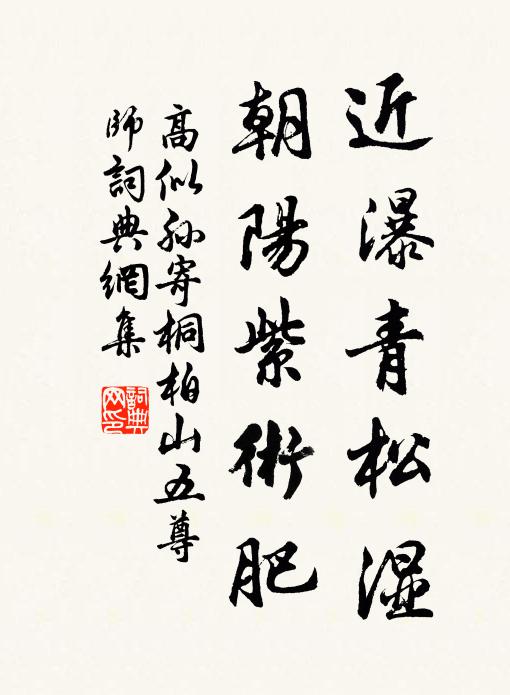 近瀑青松濕
朝陽紫術肥
高似孫寄桐柏山五尊
師詞典網集
詞典网印